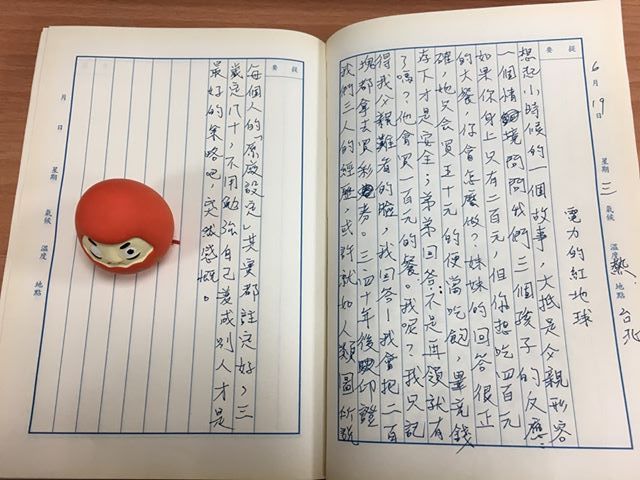 6月19日 星期三 氣候 熱 溫度 地點 台北
提要
電力的紅地球
想起小時候的一個故事，大抵是父親形容
一個情境問問我們三個孩子的反應：
如果你身上只有二百元，但你想吃四百元
的大餐，你會怎麼做？妹妹的回答很正
確，她只會買五十元的便當吃飽，畢竟錢
存下才是安全；弟弟回答：不是再領就有
了嗎？他會買一百元的餐。我呢？我只記
得我父親難看的臉，我回答—我會把二百
塊都拿去買彩券。三、四十年後印證
我們三人的經歷，或許就如人類圖所說
提要
每個人的「原廠設定」其實都註定好，三
歲定八十，不用勉強自己變成別人才是
最好的策略吧，突然感慨。
月 日 星期 氣候 溫度 地點